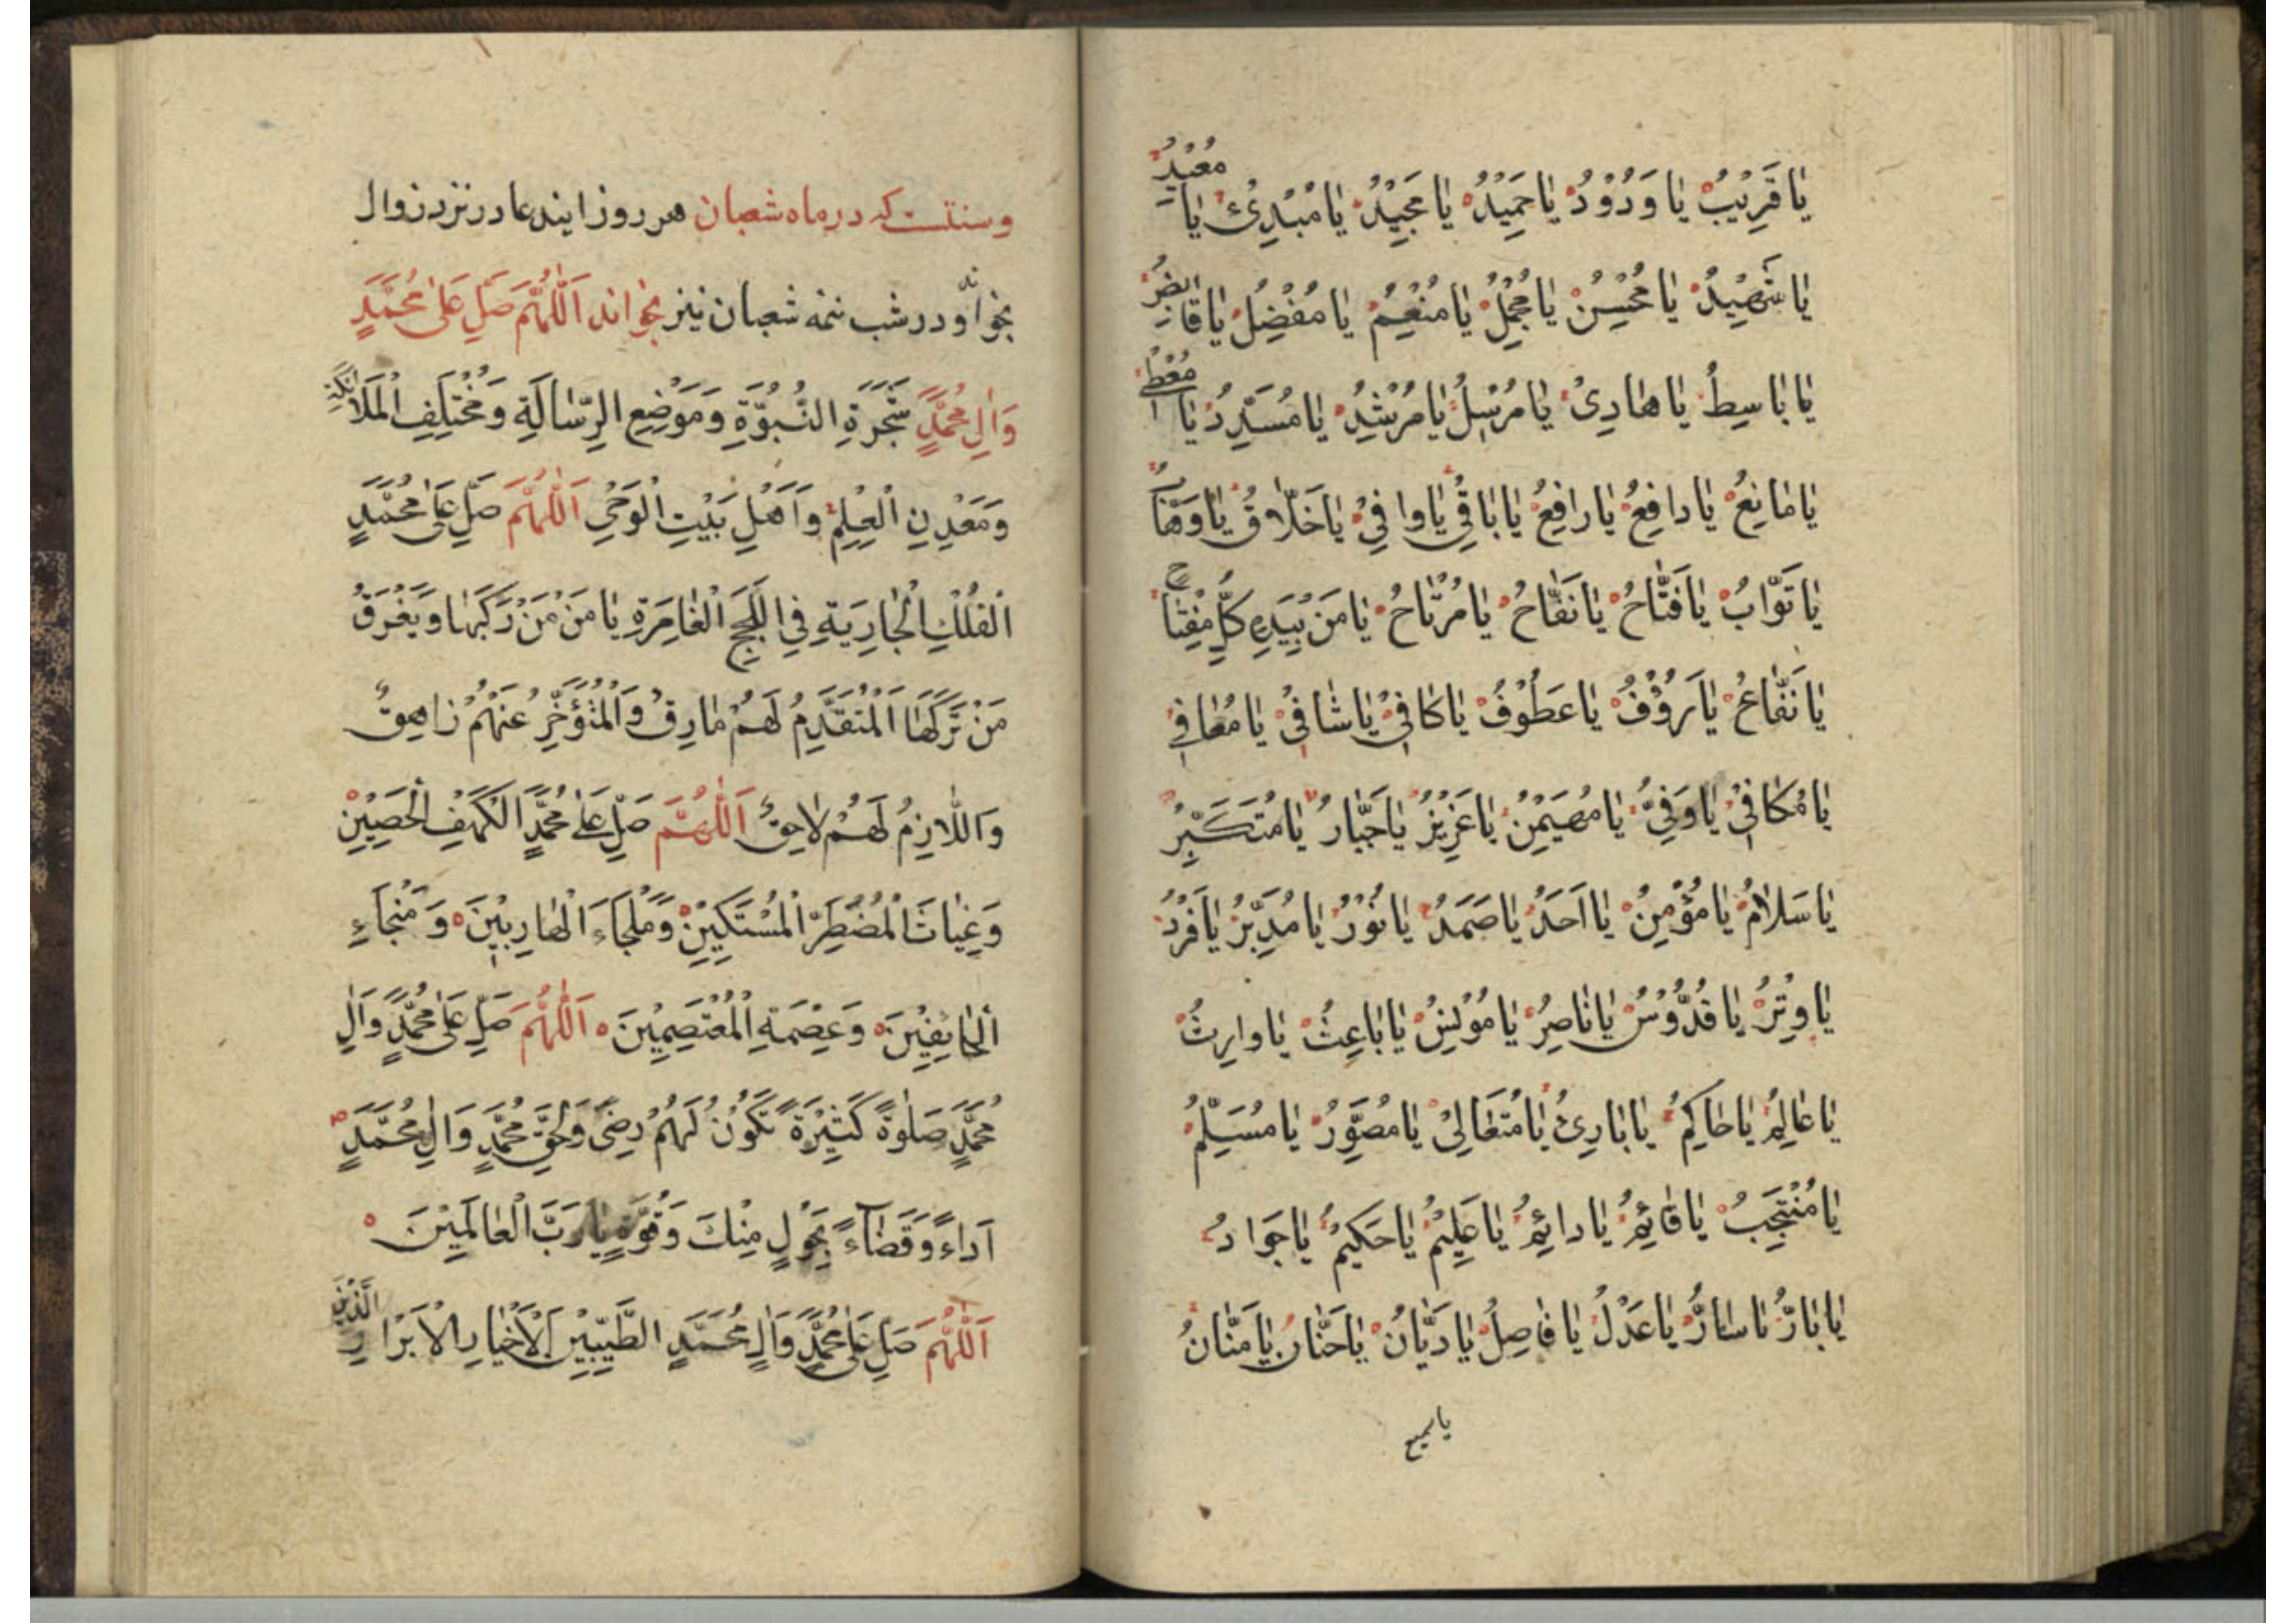 يَا قَرِيْبُ يَا وَدُوْدُ يَا حَمِيْدُ يَا مَجِيْدُ يَا مُبْدِئُ يَا مُعِيْدُ
يَا شَهِيْدُ يَا مُحْسِنُ يَا مُجْمِلُ يَا مُنْعِمُ يَا مُفْضِلُ يَا قَابِضُ
يَا بَاسِطُ يَا هَادِىْ يَا مُرْسِلُ يَا مُرْشِدُ يَا مُسَدِّدُ يَا مُعْطِىْ
يَا مَانِعُ يَا دَافِعُ يَا رَافِعُ يَا بَاقِىْ يَا وَافِىْ يَا خَلَّاقُ يَا وَهَّابُ
يَا تَوَّابُ يَا فَتَّاحُ يَا نَفَّاحُ يَا مُرْتَاحُ يَا مَنْ بِيَدِهِ كُلُّ مِفْتَاحٍ
يَا نَفَّاعُ يَا رَؤُوْفُ يَا عَطُوْفُ يَا كَافِىْ يَا شَافِىْ يَا مُعَافِىْ
يَا مُكَافِىْ يَا وَفِىُّ يَا مُهَيْمِنُ يَا عَزِيْزُ يَا جَبَّارُ يَا مُتَكَبِّرُ
يَا سَلَامُ يَا مُؤْمِنُ يَا اَحَدُ يَا صَمَدُ يَا نُوْرُ يَا مُدَبِّرُ يَا فَرْدُ
يَا وِتْرُ يَا قُدُّوْسُ يَا نَاصِرُ يَا مُوْنِسُ يَا بَاعِثُ يَا وَارِثُ
يَا عَالِمُ يَا حَاكِمُ يَا بَارِئُ يَا مُتَعَالِىْ يَا مُصَوِّرُ يَا مُسَلِّمُ
يَا مُنْتَجِبُ يَا قَائِمُ يَا دَائِمُ يَا عَلِيْمُ يَا حَكِيْمُ يَا جَوَادُ
يَا بَارُّ يَا سَارُّ يَا عَدْلُ يَا فَاصِلُ يَا دَيَّانُ يَا حَنَّانُ يَا مَنَّانُ
يا سميع
و سنتست كه در ماه شعبان هر روز ايندعا در نزد زوال
بخواند و در شب نيمه شعبان نيز بخواند اَللّٰهُمَّ صَلِّ عَلٰى مُحَمَّدٍ
وَاٰلِ مُحَمَّدٍ شَجَرَةِ النُّبُوَّةِ وَمَوْضِعِ الرِّسَالَةِ وَمُخْتَلَفِ الْمَلَائِكَةِ
وَمَعْدِنِ الْعِلْمِ وَاَهْلِ بَيْتِ الْوَحْىِ اَللّٰهُمَّ صَلِّ عَلٰى مُحَمَّدٍ
اَلْفُلْكِ الْجَارِيَةِ فِى اللُّجَجِ الْغَامِرَةِ يَا مَنْ مَنْ رَكِبَهَا وَيَغْرَقُ
مَنْ تَرَكَهَا اَلْمُتَقَدِّمُ لَهُمْ مَارِقٌ وَالْمُتَؤَخِّرُ عَنْهُمْ زَاهِقٌ
وَاللَّازِمُ لَهُمْ لَاحِقٌ اَللّٰهُمَّ صَلِّ عَلٰى مُحَمَّدٍ اَلْكَهْفِ الْحَصِيْنِ
وَغِيَاثَ الْمُضْطَرِّ الْمُسْتَكِيْنِ وَمَلْجَاءَ الْهَارِبِيْنَ وَمَنْجَاءِ
الْخَائِفِيْنَ وَعِصْمَةِ الْمُعْتَصِمِيْنَ اَللّٰهُمَّ صَلِّ عَلٰى مُحَمَّدٍ وَاٰلِ
مُحَمَّدٍ صَلٰوةً كَثِيْرَةً تَكُوْنُ لَهُمْ رِضًى وَلِحَقِّ مُحَمَّدٍ وَاٰلِ مُحَمَّدٍ
اَدَاءً وَقَضَاءً بِحَوْلٍ مِنْكَ وَقُوَّةٍ يَا رَبَّ الْعَالَمِيْنَ
اَللّٰهُمَّ صَلِّ عَلٰى مُحَمَّدٍ وَاٰلِ مُحَمَّدٍ الطَّيِّبِيْنَ الْاَخْيَارِ الْاَبْرَارِ الَّذِيْنَ